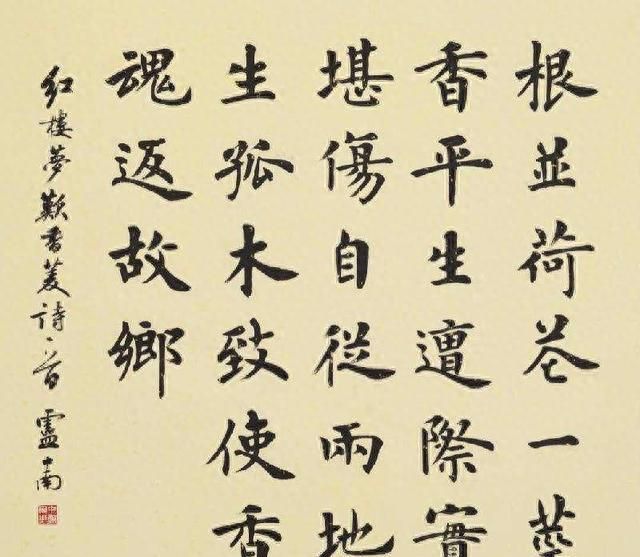 根並荷花一莖
香平生遭際實
堪傷自從兩地
生孤木致使香
魂返故鄉
紅樓夢歎香菱詩一首 盧中南